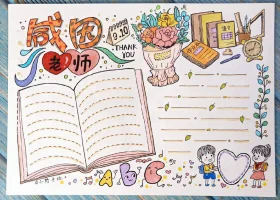 感恩
老师
9.10
THANK
YOU
ABC